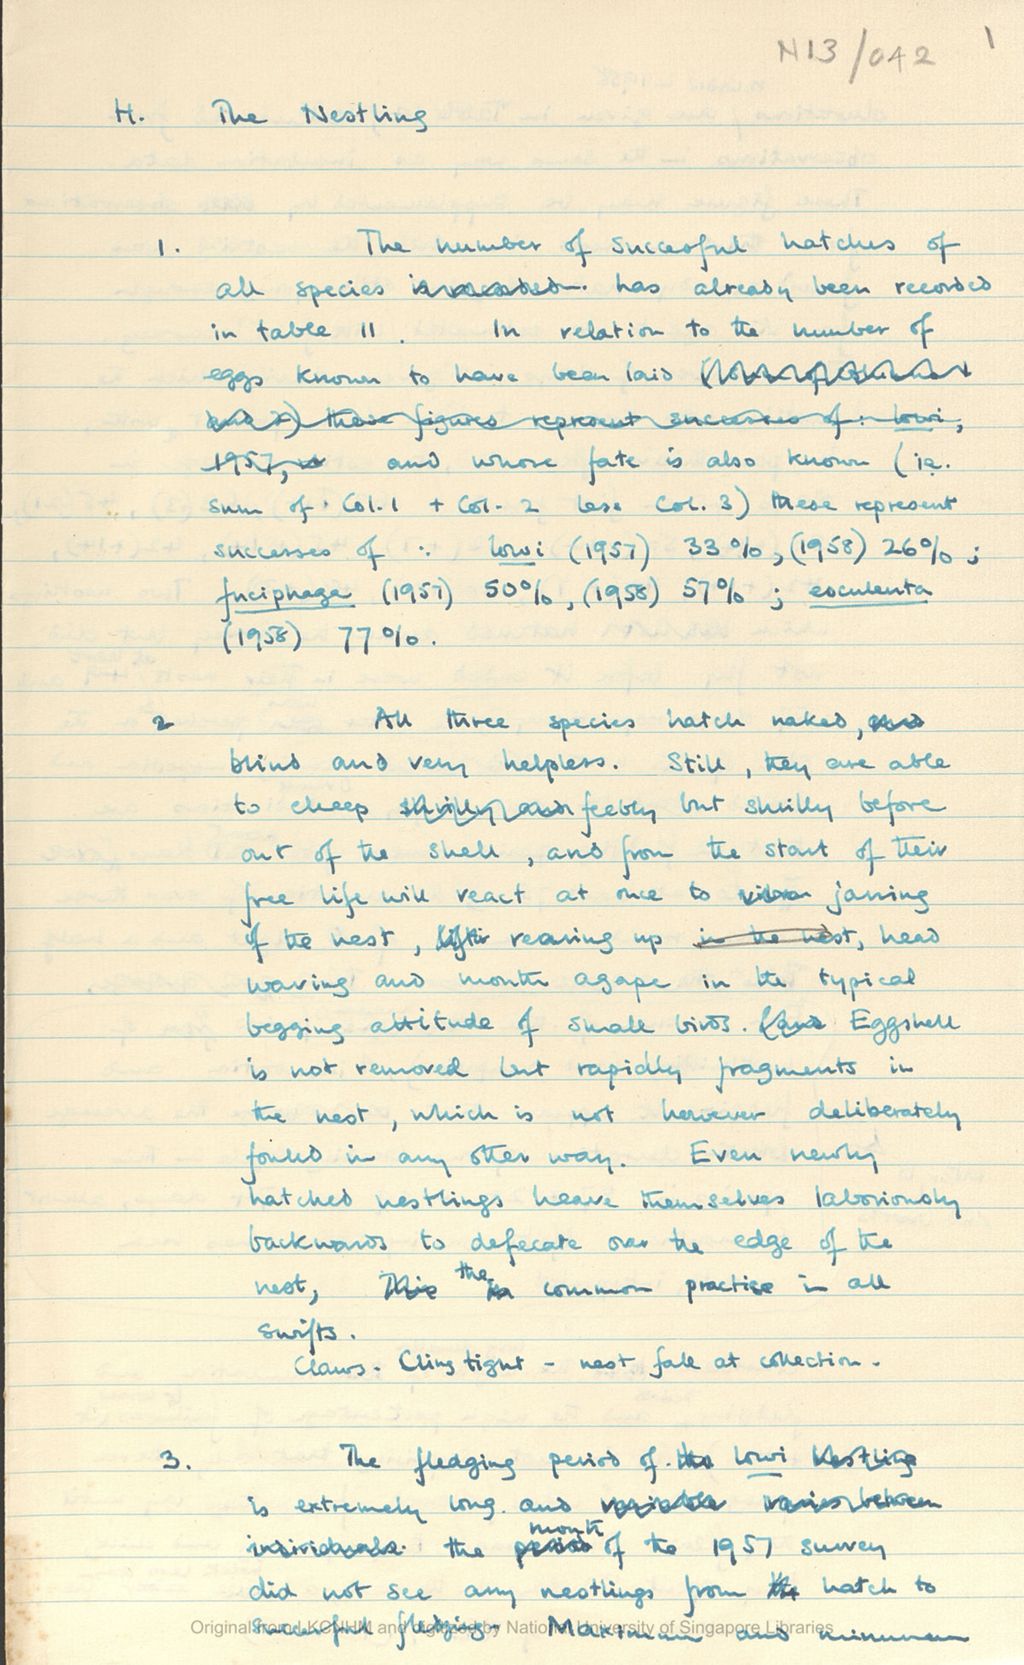 N13/042 1
H. The Nestling
1. The number of successful hatches of
all species is recorded. has already been recorded
in table 11. In relation to the number of
eggs known to have been laid
and 2) these figures represent successes of : lowi,
1957, and whose fate is also known (ie.
sum of Col. 1 + Col. 2 less Col. 3) these represent
successes of : lowi (1957) 33%, (1958) 26% ;
fuciphaga (1957) 50%, (1958) 57% ; esculenta
(1958) 77%.
2 All three species hatch naked, and
blind and very helpless. Still, they are able
to cheep shrilly and feebly but shrilly before
out of the shell, and from the start of their
free life will react at once to jarring
of the nest, rearing up in the nest, head
waving and mouth agape in the typical
begging attitude of small birds. Eggshell
is not removed but rapidly fragments in
the nest, which is not however deliberately
fouled in any other way. Even newly
hatched nestlings heave themselves laboriously
backwards to defecate over the edge of the
nest, This the common practise in all
swifts.
Claws. Cling tight - nest fall at collection.
3. The fledging period of the lowi Nestling
is extremely long. and variable varies between
individuals. the period month of the 1957 survey
did not see any nestlings from the hatch to
successful fledging. Maximum and minimum
Original from LKCNHM and digitized by National University of Singapore Libraries